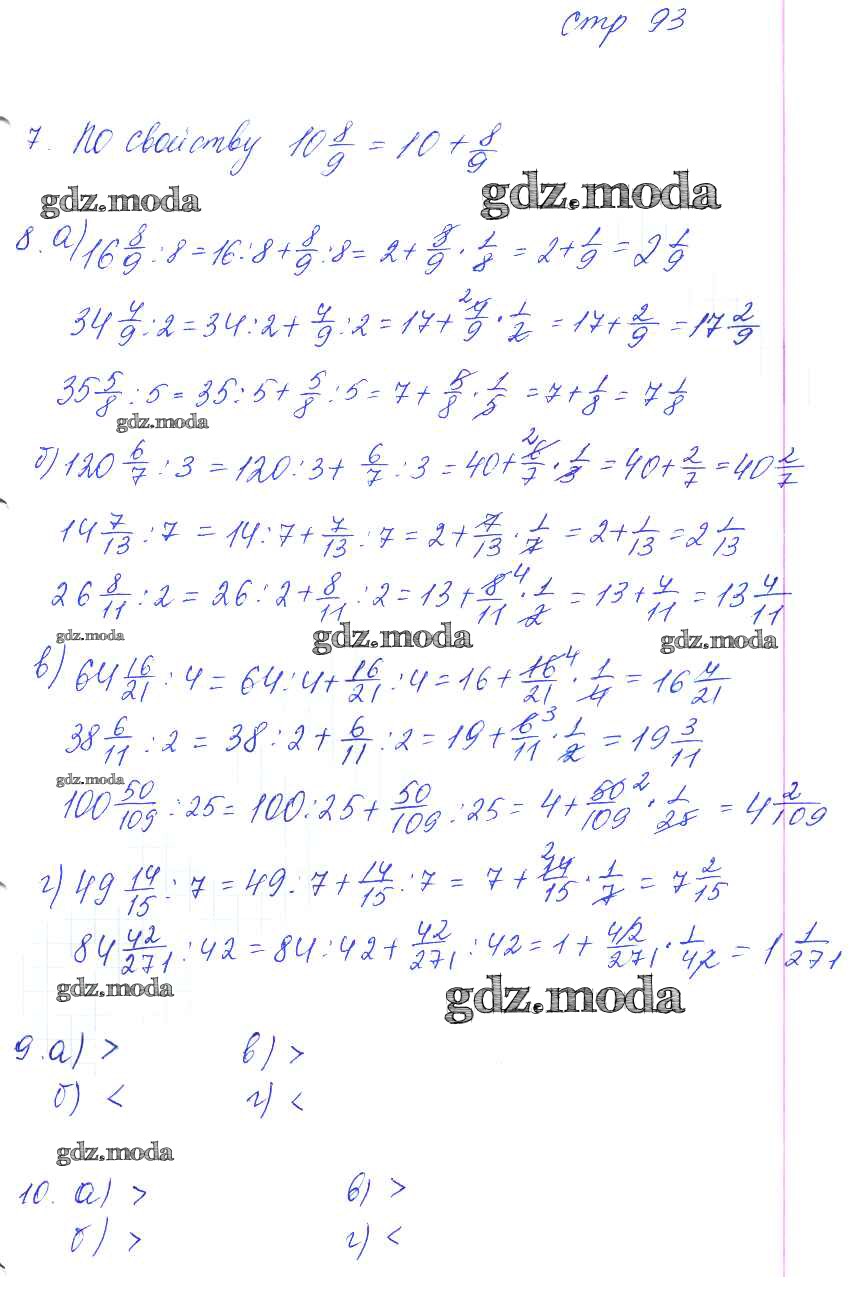 стр 93
7. По свойству 10 8/9 = 10 + 8/9
gdz.moda gdz.moda
8. а) 16 8/9 : 8 = 16 : 8 + 8/9 : 8 = 2 + 8/9 · 1/8 = 2 + 1/9 = 2 1/9
34 4/9 : 2 = 34 : 2 + 4/9 : 2 = 17 + 4/9 2 · 1/2 = 17 + 2/9 = 17 2/9
35 5/8 : 5 = 35 : 5 + 5/8 : 5 = 7 + 5/8 · 1/5 = 7 + 1/8 = 7 1/8
gdz.moda
б) 120 6/7 : 3 = 120 : 3 + 6/7 : 3 = 40 + 6/7 2 · 1/3 = 40 + 2/7 = 40 2/7
14 7/13 : 7 = 14 : 7 + 7/13 : 7 = 2 + 7/13 · 1/7 = 2 + 1/13 = 2 1/13
26 8/11 : 2 = 26 : 2 + 8/11 : 2 = 13 + 8/11 4 · 1/2 = 13 + 4/11 = 13 4/11
gdz.moda gdz.moda gdz.moda
в) 64 16/21 : 4 = 64 : 4 + 16/21 : 4 = 16 + 16/21 4 · 1/4 = 16 4/21
38 6/11 : 2 = 38 : 2 + 6/11 : 2 = 19 + 6/11 3 · 1/2 = 19 3/11
gdz.moda
100 50/109 : 25 = 100 : 25 + 50/109 : 25 = 4 + 50/109 2 · 1/25 = 4 2/109
г) 49 14/15 : 7 = 49 : 7 + 14/15 : 7 = 7 + 14/15 2 · 1/7 = 7 2/15
84 42/271 : 42 = 84 : 42 + 42/271 : 42 = 1 + 42/271 · 1/42 = 1 1/271
gdz.moda gdz.moda
9. а) > в) >
б) < г) <
gdz.moda
10. а) > в) >
б) > г) <